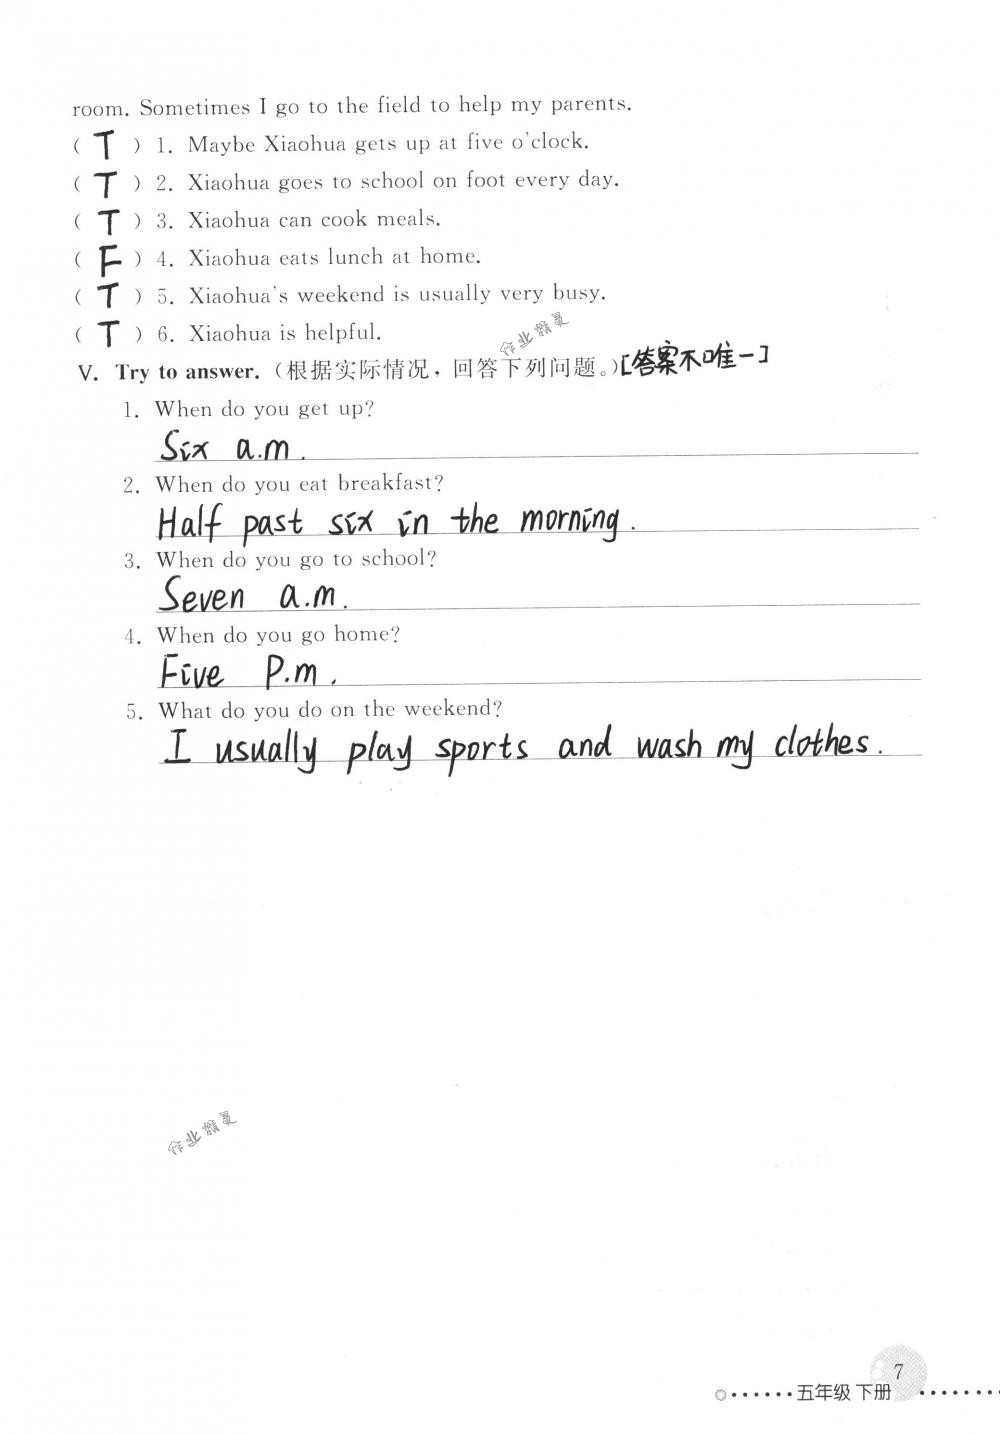 room. Sometimes I go to the field to help my parents.
( T ) 1. Maybe Xiaohua gets up at five o'clock.
( T ) 2. Xiaohua goes to school on foot every day.
( T ) 3. Xiaohua can cook meals.
( F ) 4. Xiaohua eats lunch at home.
( T ) 5. Xiaohua's weekend is usually very busy.
( T ) 6. Xiaohua is helpful.
作业精灵
V. Try to answer.(根据实际情况，回答下列问题。)[答案不唯一]
1. When do you get up?
Six a.m.
2. When do you eat breakfast?
Half past six in the morning.
3. When do you go to school?
Seven a.m.
4. When do you go home?
Five P.m.
5. What do you do on the weekend?
I usually play sports and wash my clothes.
作业精灵
7
五年级 下册